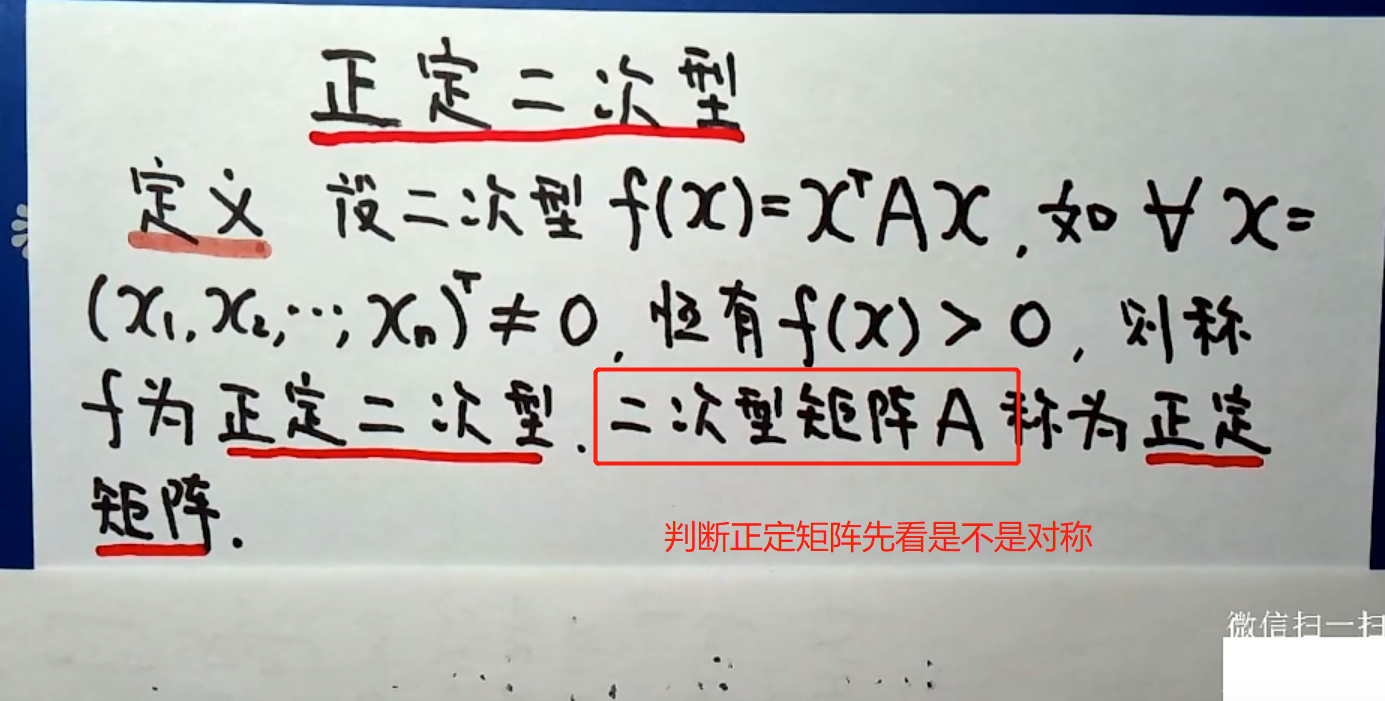 正定二次型
定义 设二次型 f(x)=xᵀAx, 如 ∀ x=
(x₁,x₂,…,xₙ)ᵀ≠0, 恒有 f(x)>0, 则称
f为正定二次型. 二次型矩阵A 称为正定
矩阵.
判断正定矩阵先看是不是对称
微信扫一扫